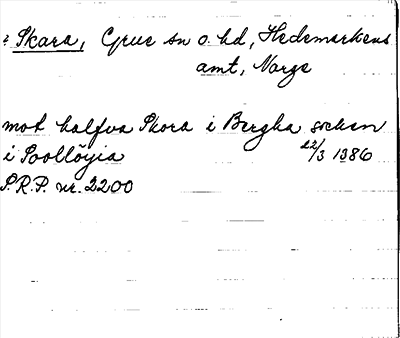 ? Skara, Grue sn o. hd, Hedemarkens
amt, Norge
mot halfva Skora i Bergha socken
i Soolløyia 22/3 1386
S.R.P. nr. 2200